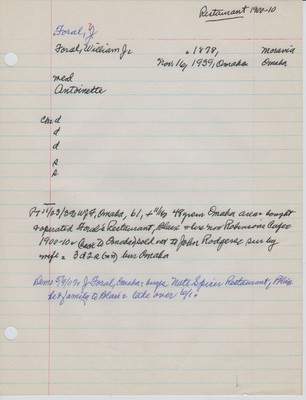 Restaurant 1900-10
Foral, J
Foral, William Jr b 1878, Moravia
Nov 16, 1939, Omaha Omaha
med
Antoinette
chn d
d
d
s
s
11/23/39: WJF, Omaha, 61, + 11/16 48 yrs in Omaha area: bought
& operated Foral's Restaurant, Blair = live now Robinsons Cafe:
1900-10 (back to Omaha) sold rest to John Rodgers: sur by
wife = 3d 2s bur Omaha
5/9/07: J Foral, Omaha: buys Nate Spicer Restaurant, Blair
he & family to Blair & take over 6/1